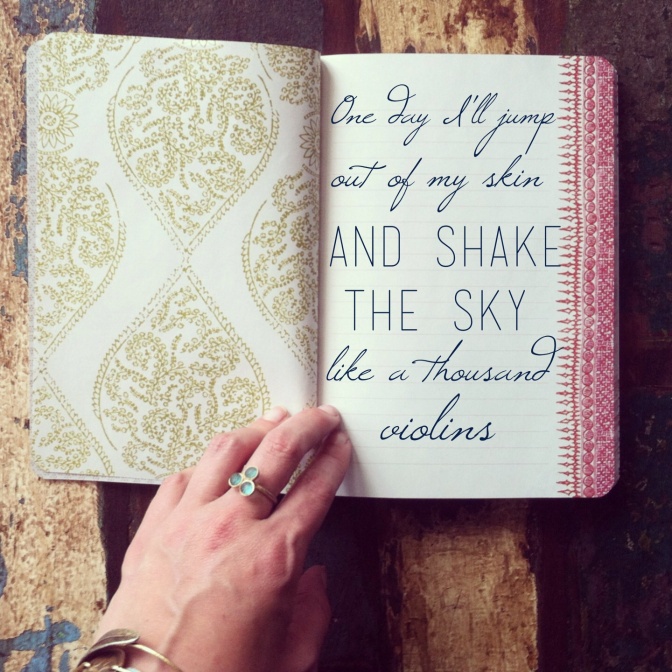 One day I'll jump
out of my skin
AND SHAKE
THE SKY
like a thousand
violins